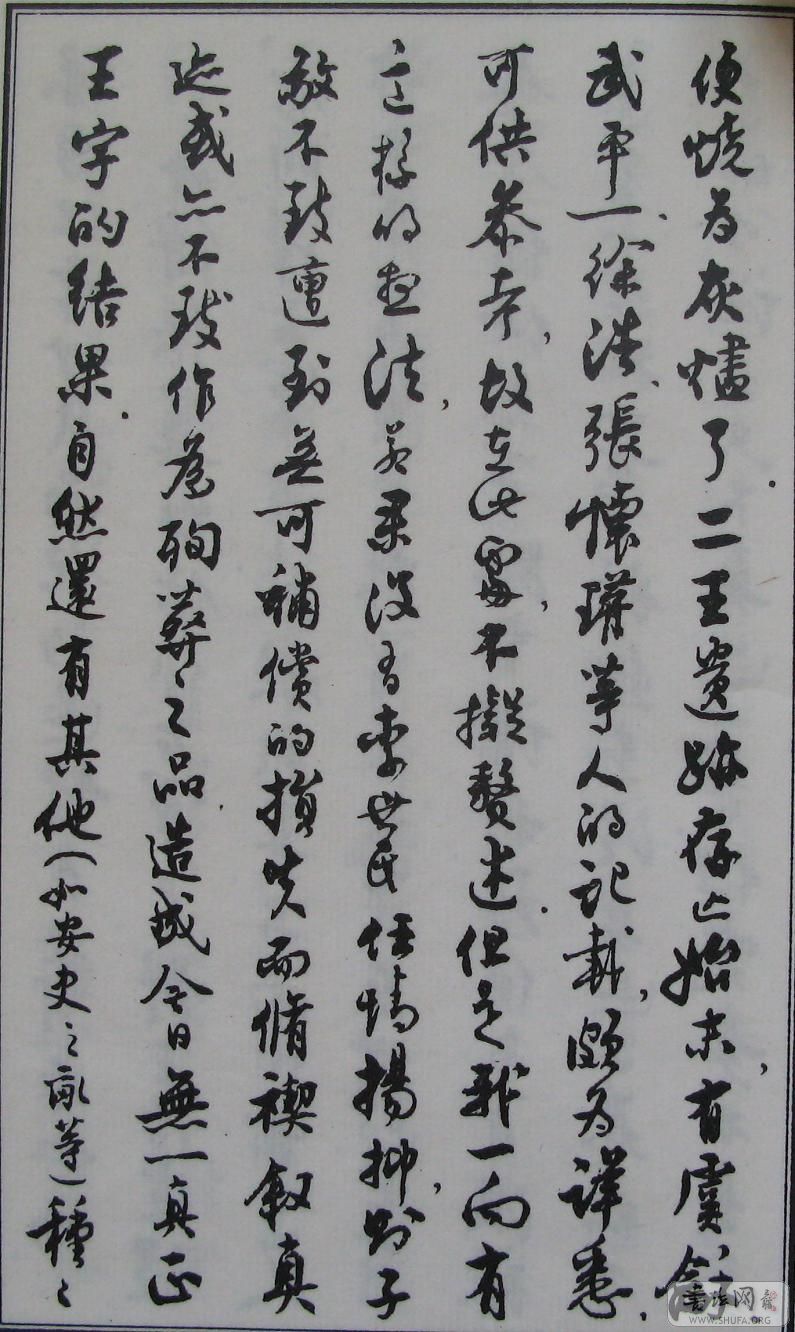 便燒為灰燼了。二王遺跡存亡始末，有虞龢、
武平一、徐浩、張懷瓘等人的記載，頗為詳悉，
可供參考，故在此處，不擬贅述。但是我一向有
這樣的想法，若果沒有李世民任情揚抑，則子
敬不致遭到無可補償的損失，而脩禊敘真
迹或亦不致作為殉葬之品，造成今日無一真正
王字的結果。自然還有其他（如安史之亂等）種種
書法网
WWW.SHUFA.ORG